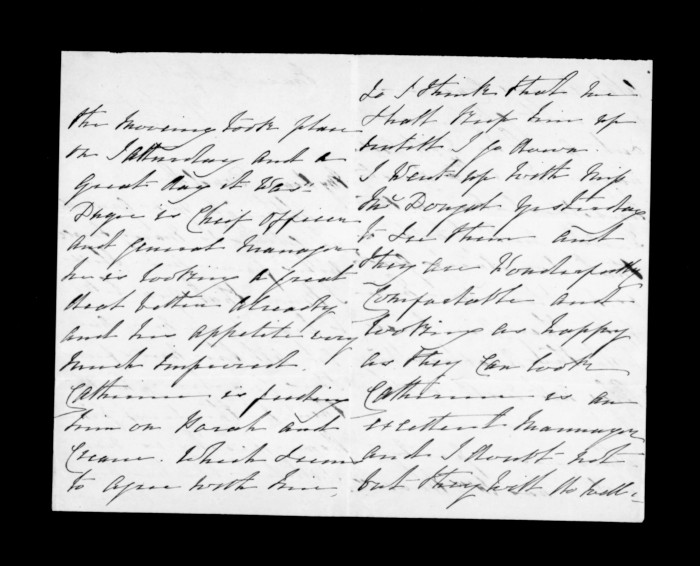 the moving took place
on Satturday and a
great day it was.
is Cheif officer
and general Manager
he is looking a great
deal better already
and his appetite very
much improved.
Catherine is feeding
him on Porah and
Cream. Which seems
to agree with him.
So I think that we
shall keep him up
untill I go down.
I went up with Miss
Mc Dougal yesterday
to see them and
they are Wonderfully
Comfortable and
looking as happy
as they can look
Catherine is an
excellent Mannager
and I doubt not
but they will do well.